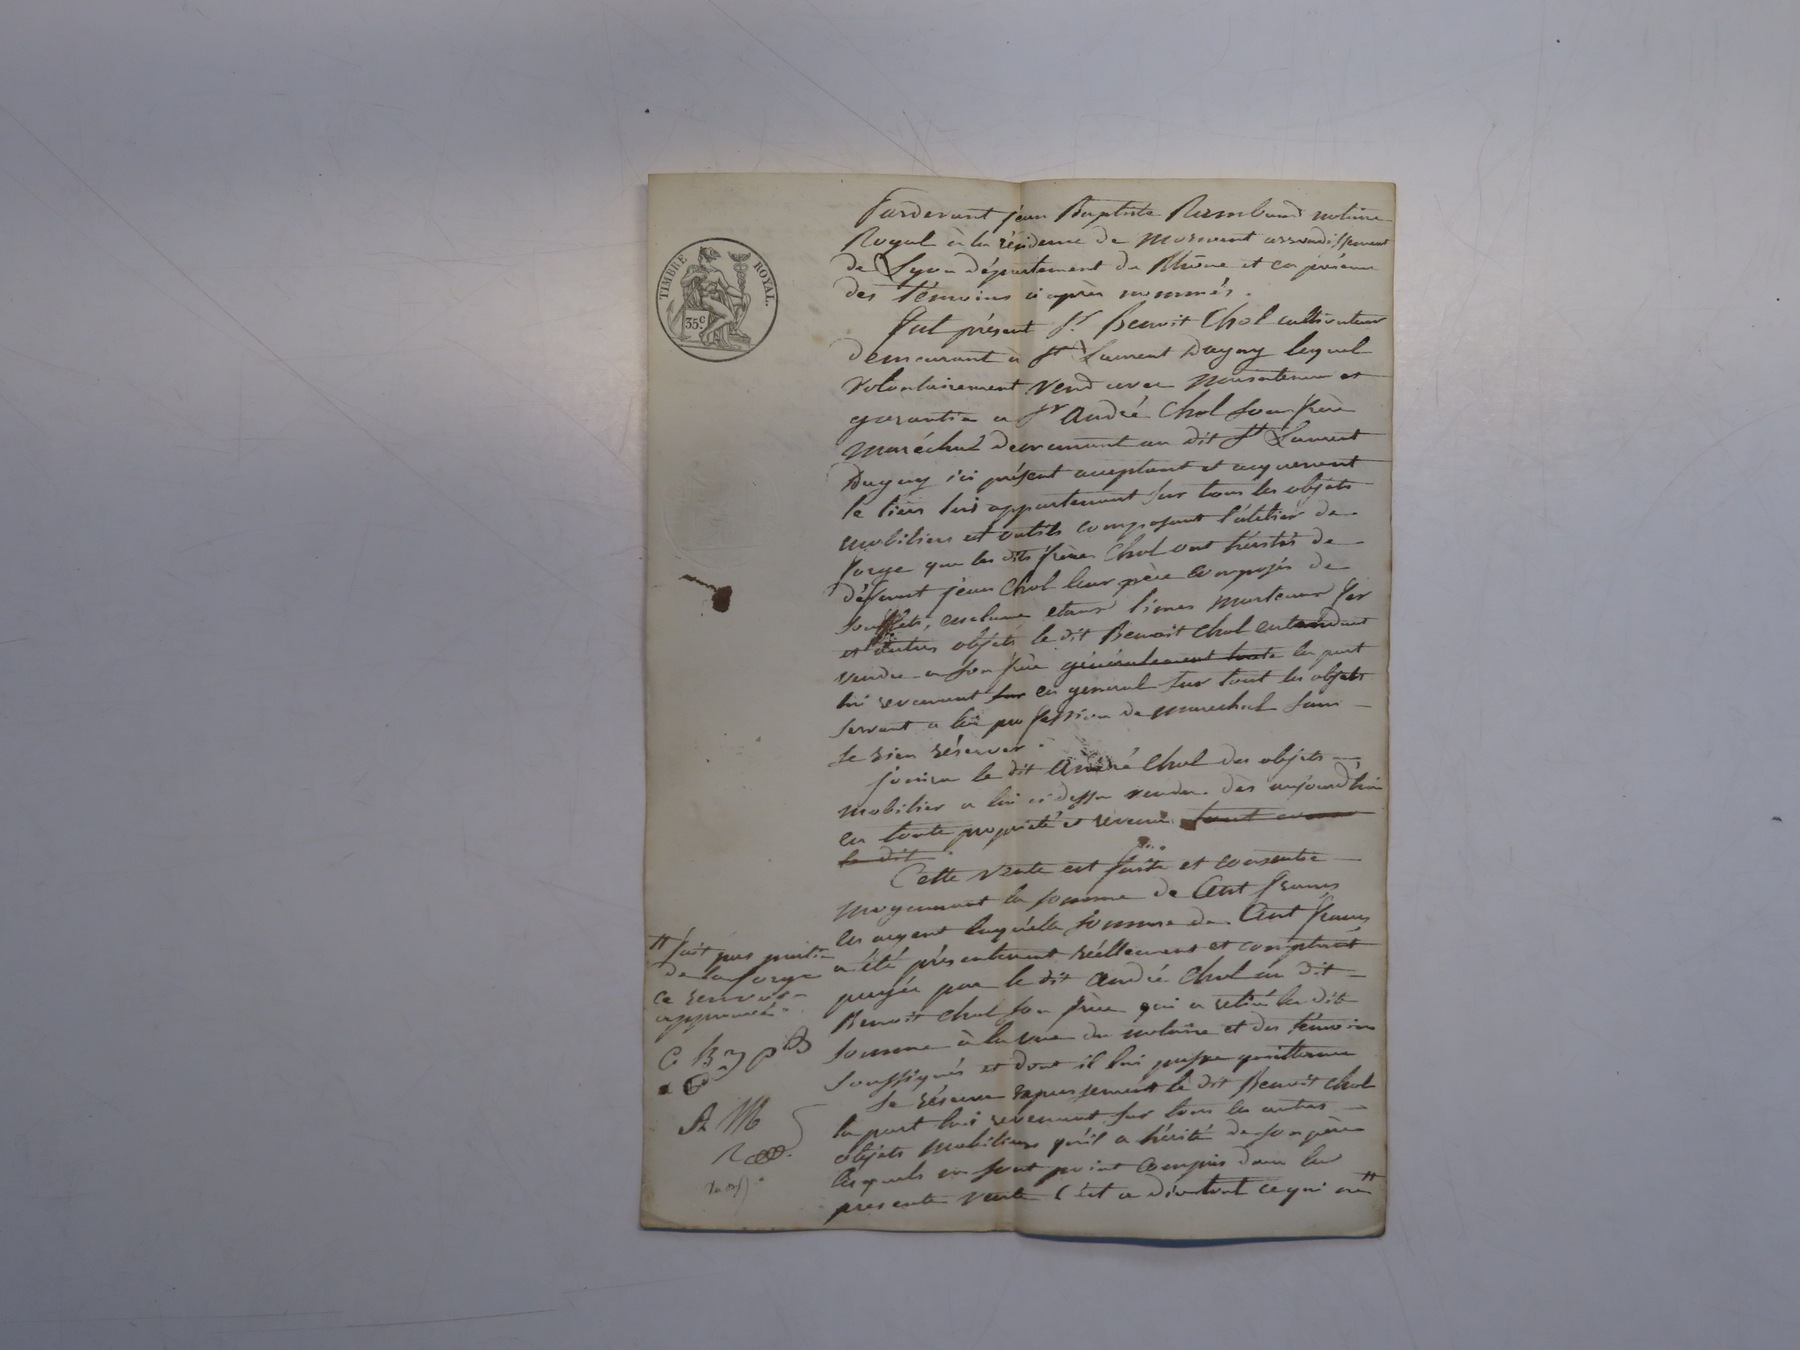 TIMBRE ROYAL.
35 c.
Pardevant jean Baptiste Rambaud notaire
Royal à la résidence de Mornant arrondissement
de Lyon département du Rhône et en présence
des témoins ci après nommés.
Fut présent Sr. Benoit Chol cultivateur
demeurant à St Laurent Dagny lequel
volontairement vend avec maintenue et
garantie a Sr André Chol son frère
maréchal demeurant au dit St Laurent
Dagny ici présent acceptant et acquerant
le tiers lui appartenant sur tous les objets
mobiliers et outils composant l'atelier de
forge que les dits frères Chol ont hérités de
défunt jean Chol leur père composés de
soufflets, enclume etaux limes marteaux fer
et autres objets le dit Benoit Chol entendant
vendre a son frère généralement toute la part
lui revenant sur en general sur tout les objets
servant a la profession de marechal sans
se rien réserver.
jouira le dit André Chol des objets
mobilier a lui ci dessu vendu dès aujourd'hui
en toute propriété et revenu
le dit
Cette vente est faite et consentie
moyennant la somme de Cent francs
en argent laquelle somme de Cent francs
a été présentement réellement et comptant
payée par le dit André Chol au dit
Benoit Chol son frère qui a retiré la dite
somme à la vue du notaire et des témoins
soussignés et dont il lui passe quittance
Se réserve expressement le dit Benoit Chol
la part lui revenant sur tous les autres
objets mobiliers qu'il a hérité de son père
lesquels ne sont point compris dans la
presente vente c'est a dire tout ce qui ne #
# fait pas partie
de la forge
ce renvoi
approuvé.
C B
A M
R